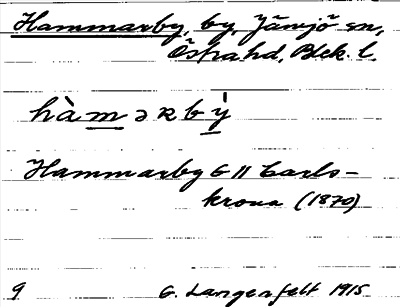 Hammarby, by, Jämjö sn,
Östra hd, Blek. l.
hàmərby̍
Hammarby G 11 Carls-
krona (1870)
9 G. Langenfelt 1915.